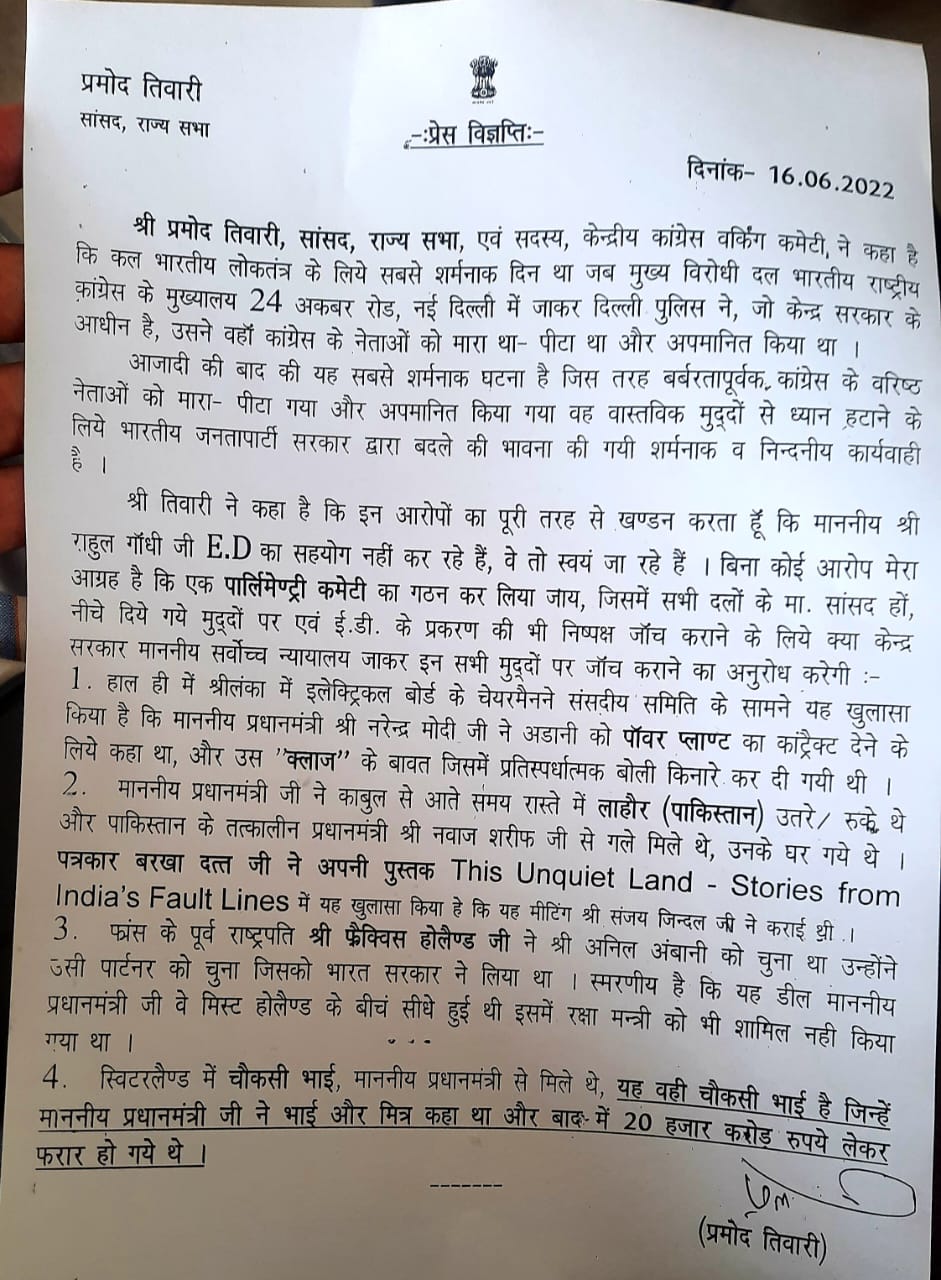 प्रमोद तिवारी
सांसद, राज्य सभा
-ःप्रेस विज्ञप्तिः-
दिनांक- 16.06.2022
श्री प्रमोद तिवारी, सांसद, राज्य सभा, एवं सदस्य, केन्द्रीय कांग्रेस वर्किंग कमेटी, ने कहा है
कि कल भारतीय लोकतंत्र के लिये सबसे शर्मनाक दिन था जब मुख्य विरोधी दल भारतीय राष्ट्रीय
कांग्रेस के मुख्यालय 24 अकबर रोड, नई दिल्ली में जाकर दिल्ली पुलिस ने, जो केन्द्र सरकार के
आधीन है, उसने वहॉ कांग्रेस के नेताओं को मारा था- पीटा था और अपमानित किया था ।
आजादी की बाद की यह सबसे शर्मनाक घटना है जिस तरह बर्बरतापूर्वक, कांग्रेस के वरिष्ठ
नेताओं को मारा- पीटा गया और अपमानित किया गया वह वास्तविक मुद्दों से ध्यान हटाने के
लिये भारतीय जनतापार्टी सरकार द्वारा बदले की भावना की गयी शर्मनाक व निन्दनीय कार्यवाही
है ।
श्री तिवारी ने कहा है कि इन आरोपों का पूरी तरह से खण्डन करता हूँ कि माननीय श्री
राहुल गाँधी जी E.D का सहयोग नहीं कर रहे हैं, वे तो स्वयं जा रहे हैं । बिना कोई आरोप मेरा
आग्रह है कि एक पार्लिमेण्ट्री कमेटी का गठन कर लिया जाय, जिसमें सभी दलों के मा. सांसद हों,
नीचे दिये गये मुद्दों पर एवं ई.डी. के प्रकरण की भी निष्पक्ष जॉच कराने के लिये क्या केन्द्र
सरकार माननीय सर्वोच्च न्यायालय जाकर इन सभी मुद्दों पर जॉच कराने का अनुरोध करेगी :-
1. हाल ही में श्रीलंका में इलेक्ट्रिकल बोर्ड के चेयरमैनने संसदीय समिति के सामने यह खुलासा
किया है कि माननीय प्रधानमंत्री श्री नरेन्द्र मोदी जी ने अडानी को पॉवर प्लाण्ट का कांट्रैक्ट देने के
लिये कहा था, और उस "क्लाज" के बावत जिसमें प्रतिस्पर्धात्मक बोली किनारे कर दी गयी थी ।
2. माननीय प्रधानमंत्री जी ने काबुल से आते समय रास्ते में लाहौर (पाकिस्तान) उतरे/ रुके थे
और पाकिस्तान के तत्कालीन प्रधानमंत्री श्री नवाज शरीफ जी से गले मिले थे, उनके घर गये थे ।
पत्रकार बरखा दत्त जी ने अपनी पुस्तक This Unquiet Land - Stories from
India's Fault Lines में यह खुलासा किया है कि यह मीटिंग श्री संजय जिन्दल जी ने कराई थी .।
3. फांस के पूर्व राष्ट्रपति श्री फ्रैक्विस होलैण्ड जी ने श्री अनिल अंबानी को चुना था उन्होंने
उसी पार्टनर को चुना जिसको भारत सरकार ने लिया था । स्मरणीय है कि यह डील माननीय
प्रधानमंत्री जी वे मिस्ट होलैण्ड के बीचं सीधे हुई थी इसमें रक्षा मन्त्री को भी शामिल नही किया
गया था ।
4. स्विटरलैण्ड में चौकसी भाई, माननीय प्रधानमंत्री से मिले थे, यह वही चौकसी भाई है जिन्हें
माननीय प्रधानमंत्री जी ने भाई और मित्र कहा था और बाद में 20 हजार करोड़ रुपये लेकर
फरार हो गये थे ।
-------
(प्रमोद तिवारी)